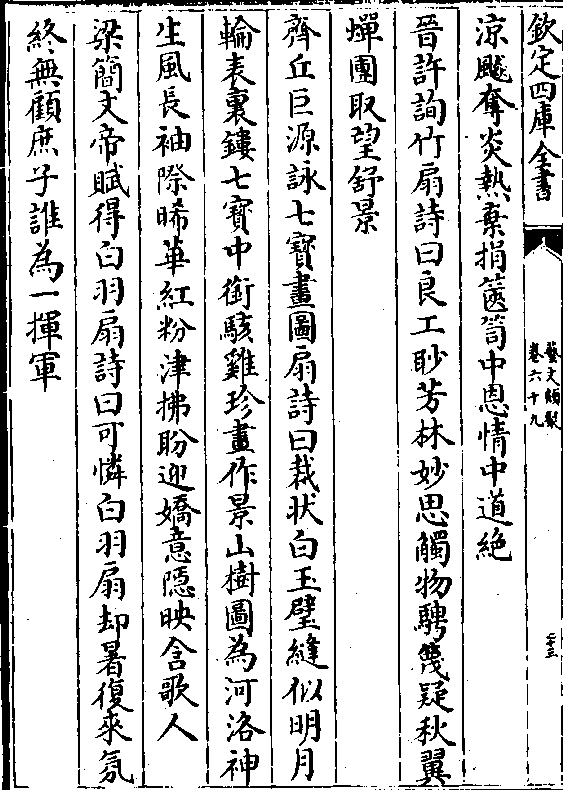 欽定四庫全書
藝文類聚
卷六十九
二三
涼飈奪炎熱棄捐篋笥中恩情中道絶
晉許詢竹扇詩曰良工眇芳林妙思觸物騁篾疑秋翼
蟬團取望舒景
齊丘巨源詠七寶畫圖扇詩曰裁状白玉璧縫似明月
輪表裏鏤七寶中銜駭雞珍畫作景山樹圖為河洛神
生風長袖際晞華紅粉津拂盼迎嬌意隠映含歌人
梁簡文帝賦得白羽扇詩曰可憐白羽扇却暑復來氛
終無顧庶子誰為一揮軍